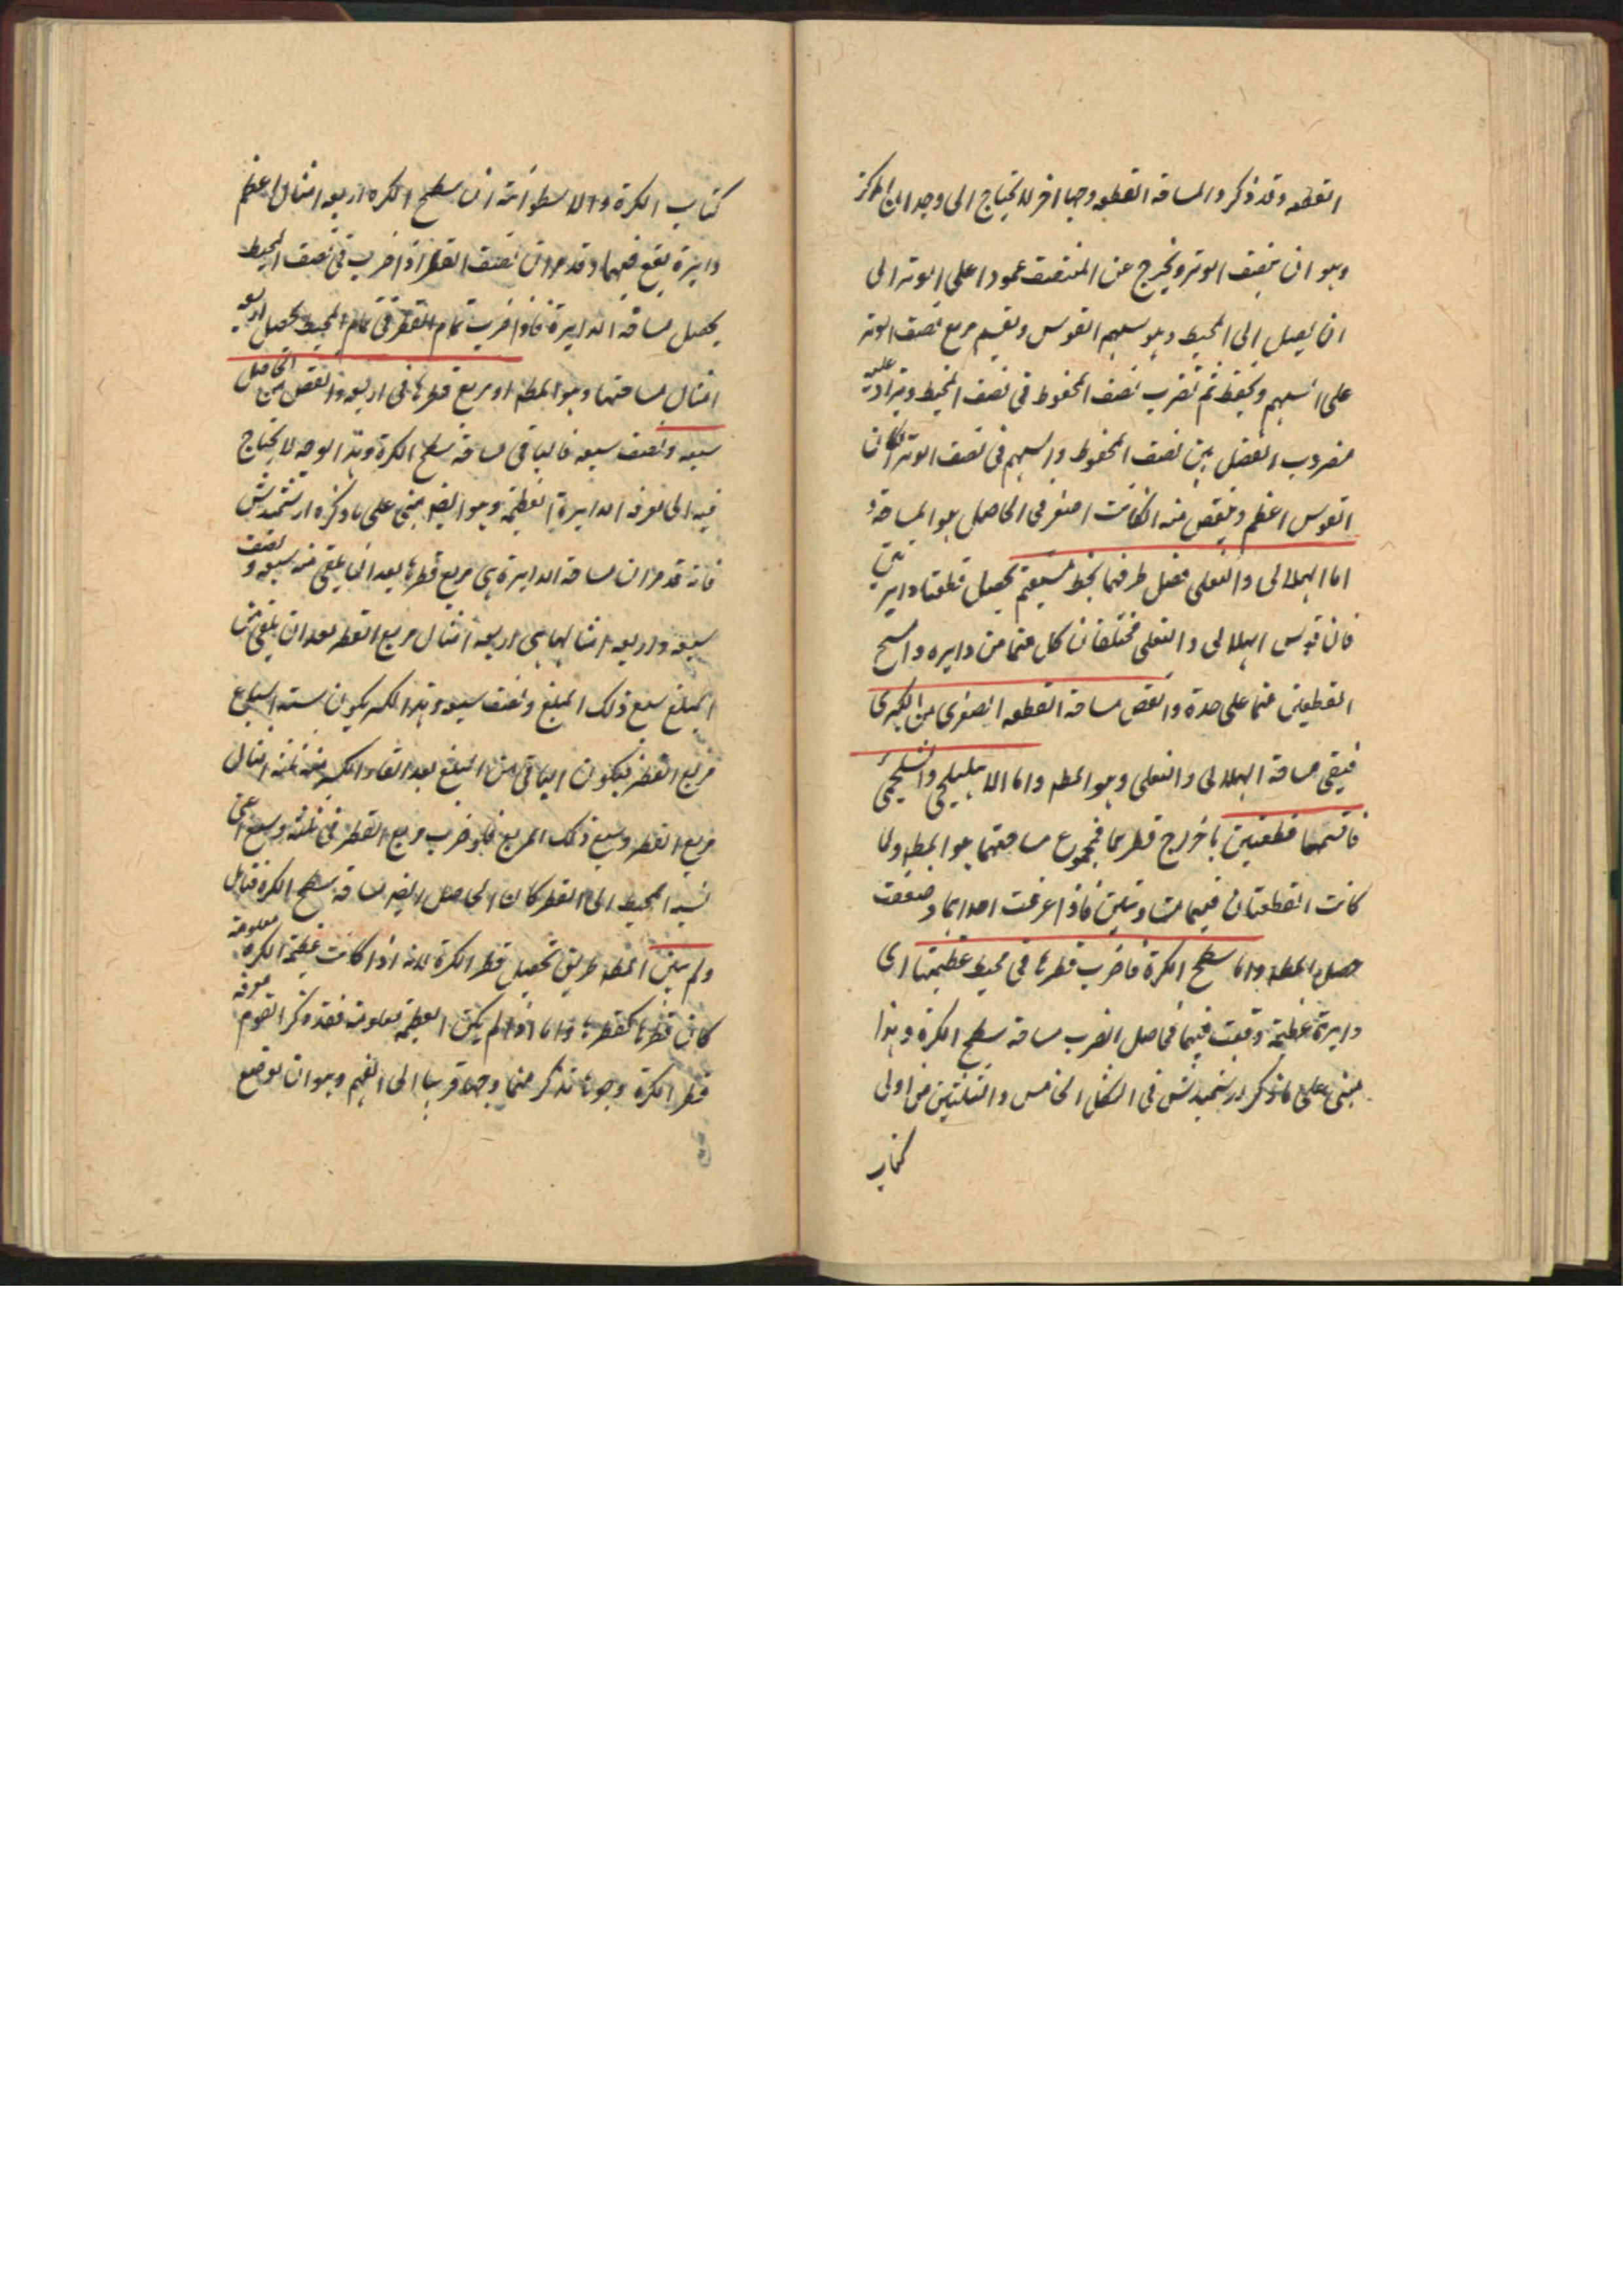 القطعه وقد ذكروا لمساحة القطعه وجها اخر لا يحتاج الى وجدان المركز
وهو ان ينصف الوتر ويخرج عن المنتصف عمودا على الوتر الى
ان يصل الى المحيط وهو سهم القوس ويقسم مربع نصف الوتر
على السهم ويحفظ ثم تضرب نصف المحفوظ فى نصف المحيط ويزاد عليه
مضروب الفضل بين نصف المحفوظ والسهم فى نصف الوتر انكان
القوس اعظم وينقص منه انكانت اصغر فى الحاصل هو المساحة و
اما الهلالى والنعلى فصل طرفيهما بخط مستقيم يحصل قطعتا دايرتين
فان قوس الهلالى والنعلى مختلفان كل منهما من دايره وامسح
القطعتين منهما على حدة وانقص مساحة القطعه الصغرى من الكبرى
فيبقى مساحة الهلالى والنعلى وهو المطه واما الاهليلجى والشلجمى
فاقسمهما قطعتين باخراج قطريهما فمجموع مساحتهما هو المطه ولما
كانت القطعتان فيهما متساويتين فاذا عرفت احداهما وضعفت
حصل المطه واما سطح الكرة فاضرب قطرها فى محيط عظيمتها اى
دايرة عظيمة وقعت فيها فحاصل الضرب مساحة سطح الكرة وهذا
مبنى على ما ذكر ارشميدش فى الشكل الخامس والثلثين من اولى
كتاب
كتاب الكرة والاسطوانة ان سطح الكره اربعه امثال اعظم
دايرة تقع فيها وقد مر ان نصف القطر اذا ضرب فى نصف المحيط
يحصل مساحة الدايرة فاذا ضرب تمام القطر فى تمام المحيط يحصل اربعه
امثال مساحتها وهو المطه او مربع قطرها فى اربعه وانقص من الحاصل
سبعه ونصف سبعه فالباقى مساحة سطح الكرة وهذا الوجه لا يحتاج
فيه الى معرفة الدايرة العظيمة وهو ايضا مبنى على ما ذكره ارشميدش
فانه قد مر ان مساحة الدايرة هى مربع قطرها بعد ان يلقى منه سبعه و نصف
سبعه واربعه امثالها هى اربعه امثال مربع القطر بعد ان يلقى من
المبلغ سبع ذلك المبلغ ونصف سبعه وهذا الكسر يكون ستة اسباع
مربع القطر فيكون الباقى من المبلغ بعد القاء الكسر منه ثلثه امثال
مربع القطر وسبع ذلك المربع فلو ضرب مربع القطر فى ثلثه وسبع اعنى
نسبه المحيط الى القطر كان الحاصل ايضا مساحة سطح الكرة فتامل
ولم يبين المطه طريق تحصيل قطر الكرة لانه اذا كانت عظيمة الكره معلومة
كان قطرها كقطرها واما اذا لم يكن العظيمه معلومة فقد ذكر القوم معرفة
قطر الكرة وجوها نذكر منها وجها قريبا الى الفهم وهو ان يوضع